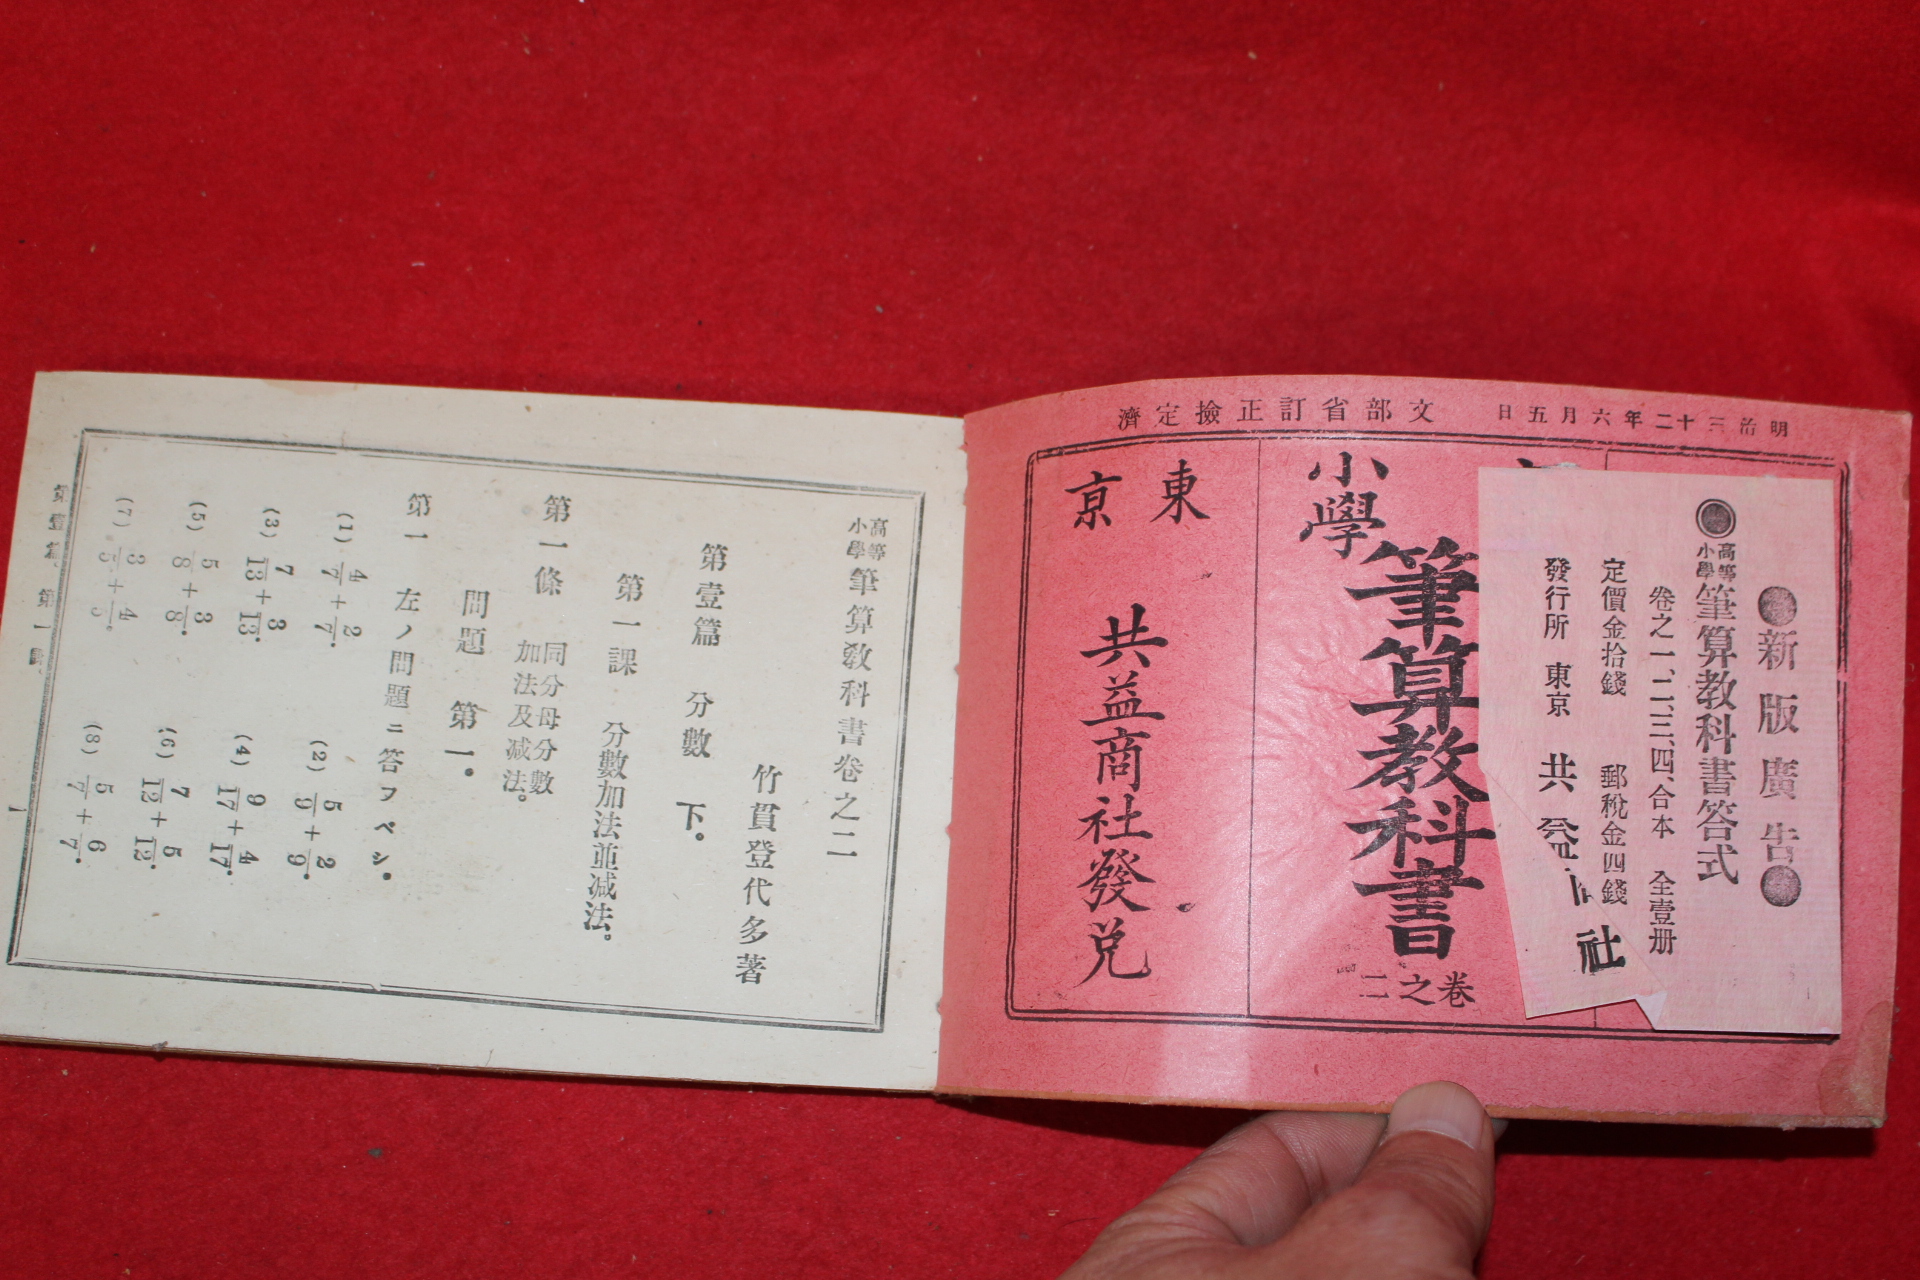 明治三十二年六月五日 文部省訂正檢定濟
●新版廣告●
高等小學筆算教科書答式
卷之一、二、三、四、合本 全壹册
定價金拾錢 郵稅金四錢
發行所 東京 共益商社
小學
筆算教科書
卷之二
東京
共益商社發兌
高等小學筆算教科書卷之二
竹貫登代多著
第壹篇 分數 下.
第一課 分數加法並減法。
第一條 同分母分數加法及減法。
問題 第一.
第一 左ノ問題ニ答フベシ.
(1) 4/7 + 2/7.
(2) 5/9 + 2/9.
(3) 7/13 + 3/13.
(4) 9/17 + 4/17.
(5) 5/8 + 3/8.
(6) 7/12 + 5/12.
(7) 3/5 + 4/5.
(8) 5/7 + 6/7.
第壹篇. 第一課.
1